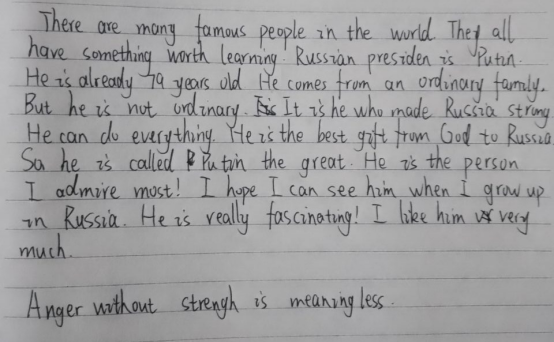 There are many famous people in the world They all
have something worth learning. Russian presiden is Putin.
He is already 79 years old He comes from an ordinary family.
But he is not ordinary. It is he who made Russia strong
He can do everything. He is the best gift from God to Russia
So he is called Putin the great. He is the person
I admire most! I hope I can see him when I grow up
in Russia. He is really fascinating! I like him very
much.
Anger without strengh is meaningless.